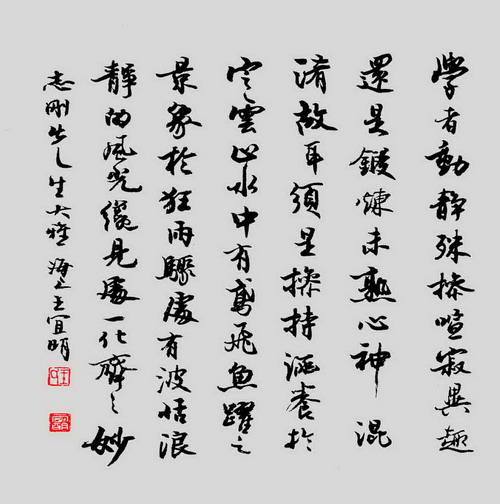 學者動靜殊操喧寂異趣
還是鍛煉未熟心神混
淆故耳須是操持涵養於
定雲止水中有鳶飛魚躍之
景象於狂雨驟處有波恬浪
靜的風光纔見處一化齊之妙
志剛先生大雅 海上王宜明